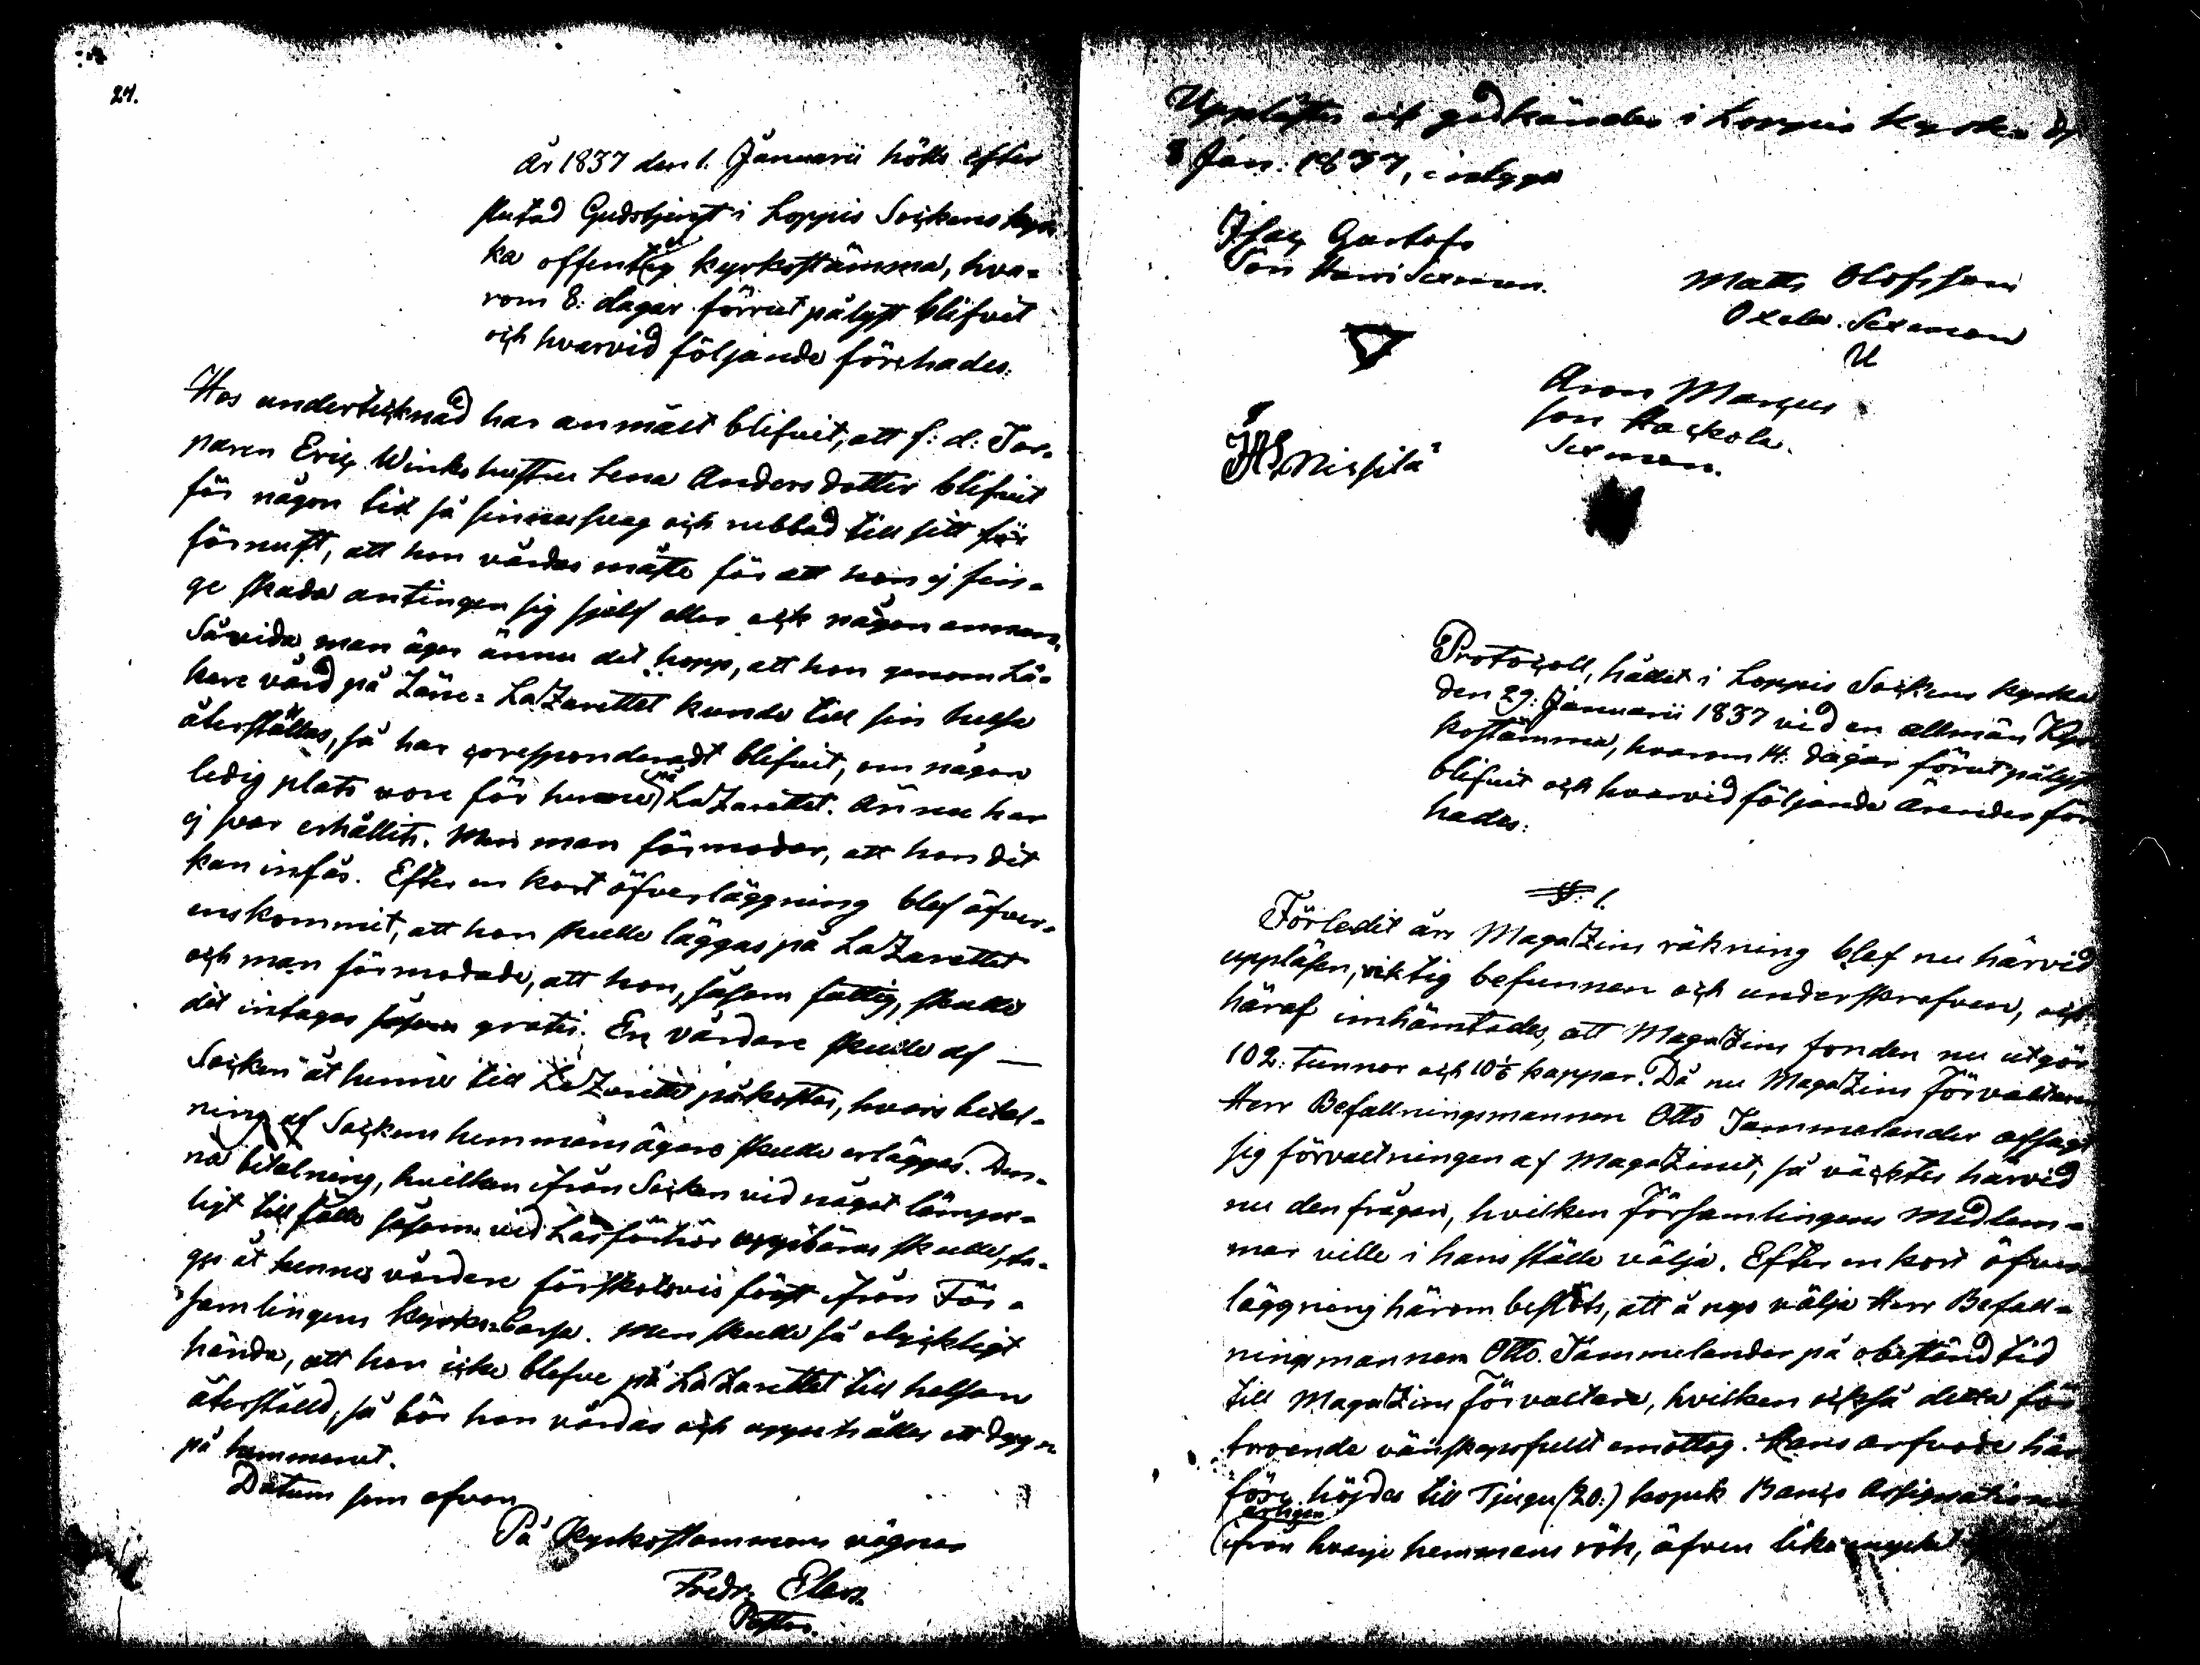 24.
År 1837 den 1. Januarii hölls efter
slutad Gudstjenst i Loppis Sockens kyr
ka offentlig kyrkostämma, hva-
rom 8: dagar förrut pålyst blifvit
och hvarvid följande förehades:
Hos undertecknad har anmält blifvit, att f: d: Tor-
paren Eric Winks hustru Lena Andersdotter blifvit
för någon tid så sinnessvag och rubbad till sitt för
förnuft, att hon vårdas måste för att hon ej fin-
ge skada antingen sig sjelf eller ock någon annan,
Såvida man äger ännu det hopp, att hon genom Lä-
kare vård på Läns-LaZarettet kunde till sin helsa
återställas, så har corresponderadt blifvit, om någon
ledig plats vore för henne på LaZarettet. Ännu har
ej svar erhållits. Men man förmodar, att hon dit
kan infås. Efter en kort öfverläggning blef öfver-
enskommit, att hon skulle läggas på LaZarettet
och man förmodade, att hon, såsom fattig, skulle
dit intagas såsom gratis. En vårdare skulle af —
Socken åt henne till LaZarettet påkostas, hvars betal-
ning af Sockens hemmans ägare skulle erläggas. Den-
na betalning, hvilken ifrån Socken vid något lämpe-
ligt tillfälle såsom vid Läsförhör uppbäras skulle, ta-
gs åt hennes vårdare förskotsvis först ifrån För-
samlingens kyrko-Cassa. Men skulle så olyckligt
hända, att hon icke blefve på LaZarettet till helsan
återställd, så bör hon vårdas och uppehålles ett dygn
på hemmanet.
Datum som ofvan
På Kyrkostämmans vägnar
Fredr.
Pastor.
Upplästes och godkändes i Loppis Kyrka d
8 Jan: 1837, intyga
Isac Gustafs
Son Sexman.
Matts Olofsson
Sexman
Aron Marcus
son Hackola.
Sexman.
Protocoll, hållet i Loppis Sockens kyrka
den 29: Januarii 1837 vid en allmän Kyr
kostämma, hvarom 14: dagar förut pålyst
blifvit och hvarvid följande Ärender före
hades:
§: 1.
Förledit års MagaZins räkning blef nu härvid
uppläsen, riktig befunnen och underskrefven, och
häraf inhämtades, att MagaZins fonden nu utgör
102: tunnor och 10½ kappar. Då nu MagaZins Förvaltaren
Herr Befallningsmannen Otto Tammelander afsagt
sig förvaltningen af MagaZinet, så väcktes härvid
nu den frågan, hvilken Församlingens Medlem-
mar ville i hans ställe välja. Efter en kort öfver
läggning härom beslöts, att å nyo välja Herr Befall-
ningsmannen Otto Tammelander på obestämd tid
till MagaZins förvaltare, hvilken ocksä detta för
troende vänskapsfullt emottog. Hans arfvode här
före höjdes till Tjugu (20:) kopek Banco Assignationer
årligen
ifrån hvarje hemmans rök, äfven lika mycket